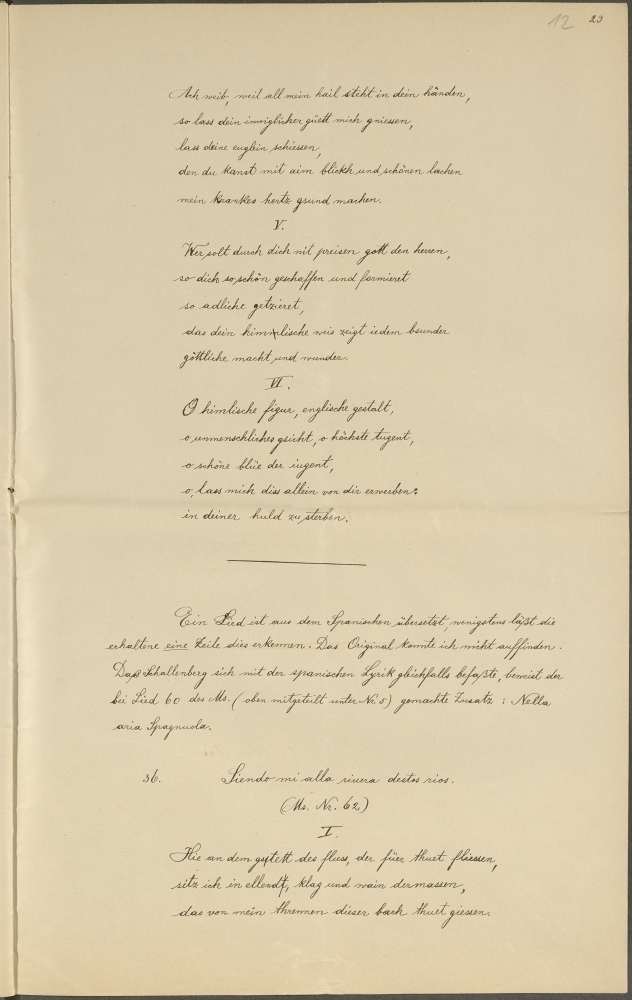 12 23
Ach weib, weil all mein hail steht in dein händen,
so lass dein inniglicher güett mich gniessen,
lass deine euglein schiessen,
den du kanst mit aim blickh und schönen lachen
mein krankes hertz gsund machen.
V.
Wer solt durch dich nit preisen gott den herren,
so dich so schön geschaffen und formieret
so adliche getzieret,
das dein himlische weis zeigt iedem bsunder
göttliche macht und wunder.
VI.
O himlische figur, englische gestalt,
o unmenschliches gsicht, o höchste tugent,
o schöne blüe der iugent,
o, lass mich diss allein von dir erwerben:
in deiner huld zu sterben.
Ein Lied ist aus dem Spanischen übersetzt, wenigstens läßt die
erhaltene eine Zeile dies erkennen. Das Original konnte ich nicht auffinden.
Daß Schallenberg sich mit der spanischen Lyrik gleichfalls befaßte, beweist der
bei Lied 60 des Ms. (oben mitgeteilt unter Nr. 5) gemachte Zusatz: Nella
aria Spagnuola.
36. Siendo mi alla rivera destos rios.
(Ms. Nr. 62)
I.
Hie an dem gstett des fluss, der füer thuet fliessen,
sitz ich in ellendt, klag und wain dermassen,
das von mein thrennen dieser bach thuet giessen.